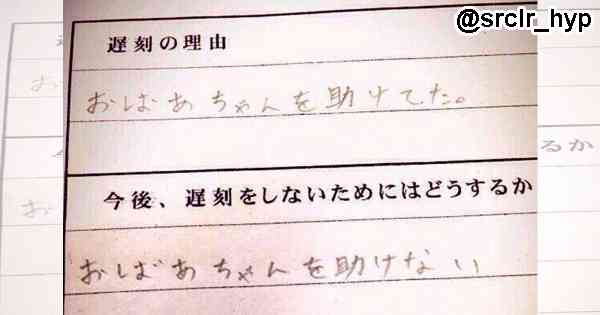 @srclr_hyp
遅刻の理由
おばあちゃんを助けてた。
今後、遅刻をしないためにはどうするか
おばあちゃんを助けない